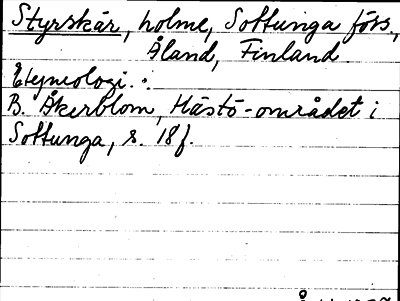 Styrskär, holme, Sottunga förs.,
Åland, Finland
Etymologi.:
B. Åkerblom, Hästö-området i
Sottunga, s. 18f.